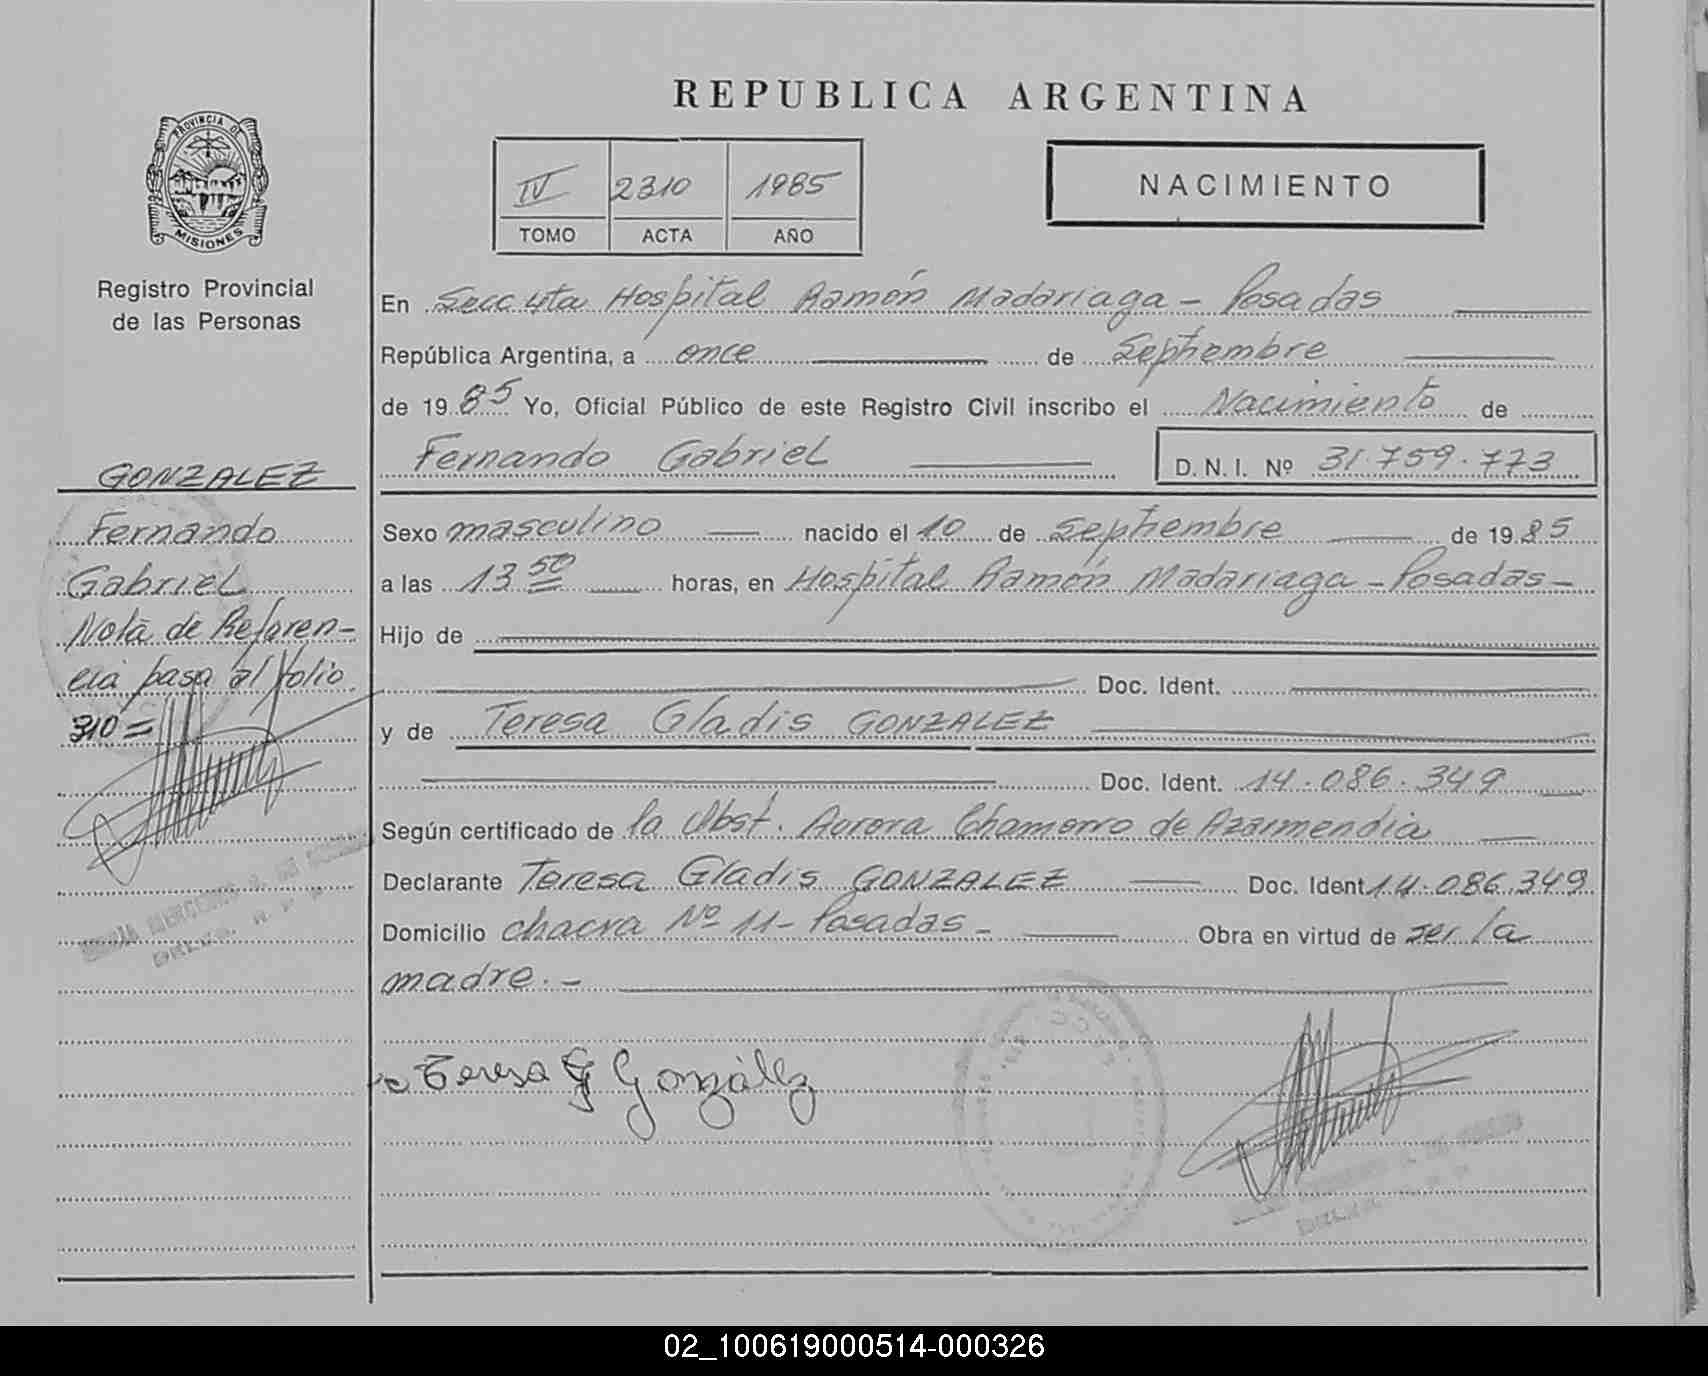 REPUBLICA ARGENTINA
PROVINCIA DE
MISIONES
Registro Provincial
de las Personas
IV 2310 1985
TOMO ACTA AÑO
NACIMIENTO
En Secc 4ta Hospital Ramón Madariaga - Posadas
República Argentina, a once de Septiembre
de 1985 Yo, Oficial Público de este Registro Civil inscribo el Nacimiento de
Fernando Gabriel D. N. I. Nº 31.759.773
Sexo masculino nacido el 10 de Septiembre de 1985
a las 13 50 horas, en Hospital Ramón Madariaga - Posadas -
Hijo de
Doc. Ident.
y de Teresa Gladis GONZALEZ
Doc. Ident. 14.086.349
Según certificado de la Obst. Aurora Chamorro de Azarmendia
Declarante Teresa Gladis GONZALEZ Doc. Ident 14.086.349
Domicilio chacra Nº 11 - Posadas - Obra en virtud de ser la
madre. -
Teresa G González
GONZALEZ
Fernando
Gabriel
Nota de Referen-
cia pasa al folio
310 =
02_100619000514-000326